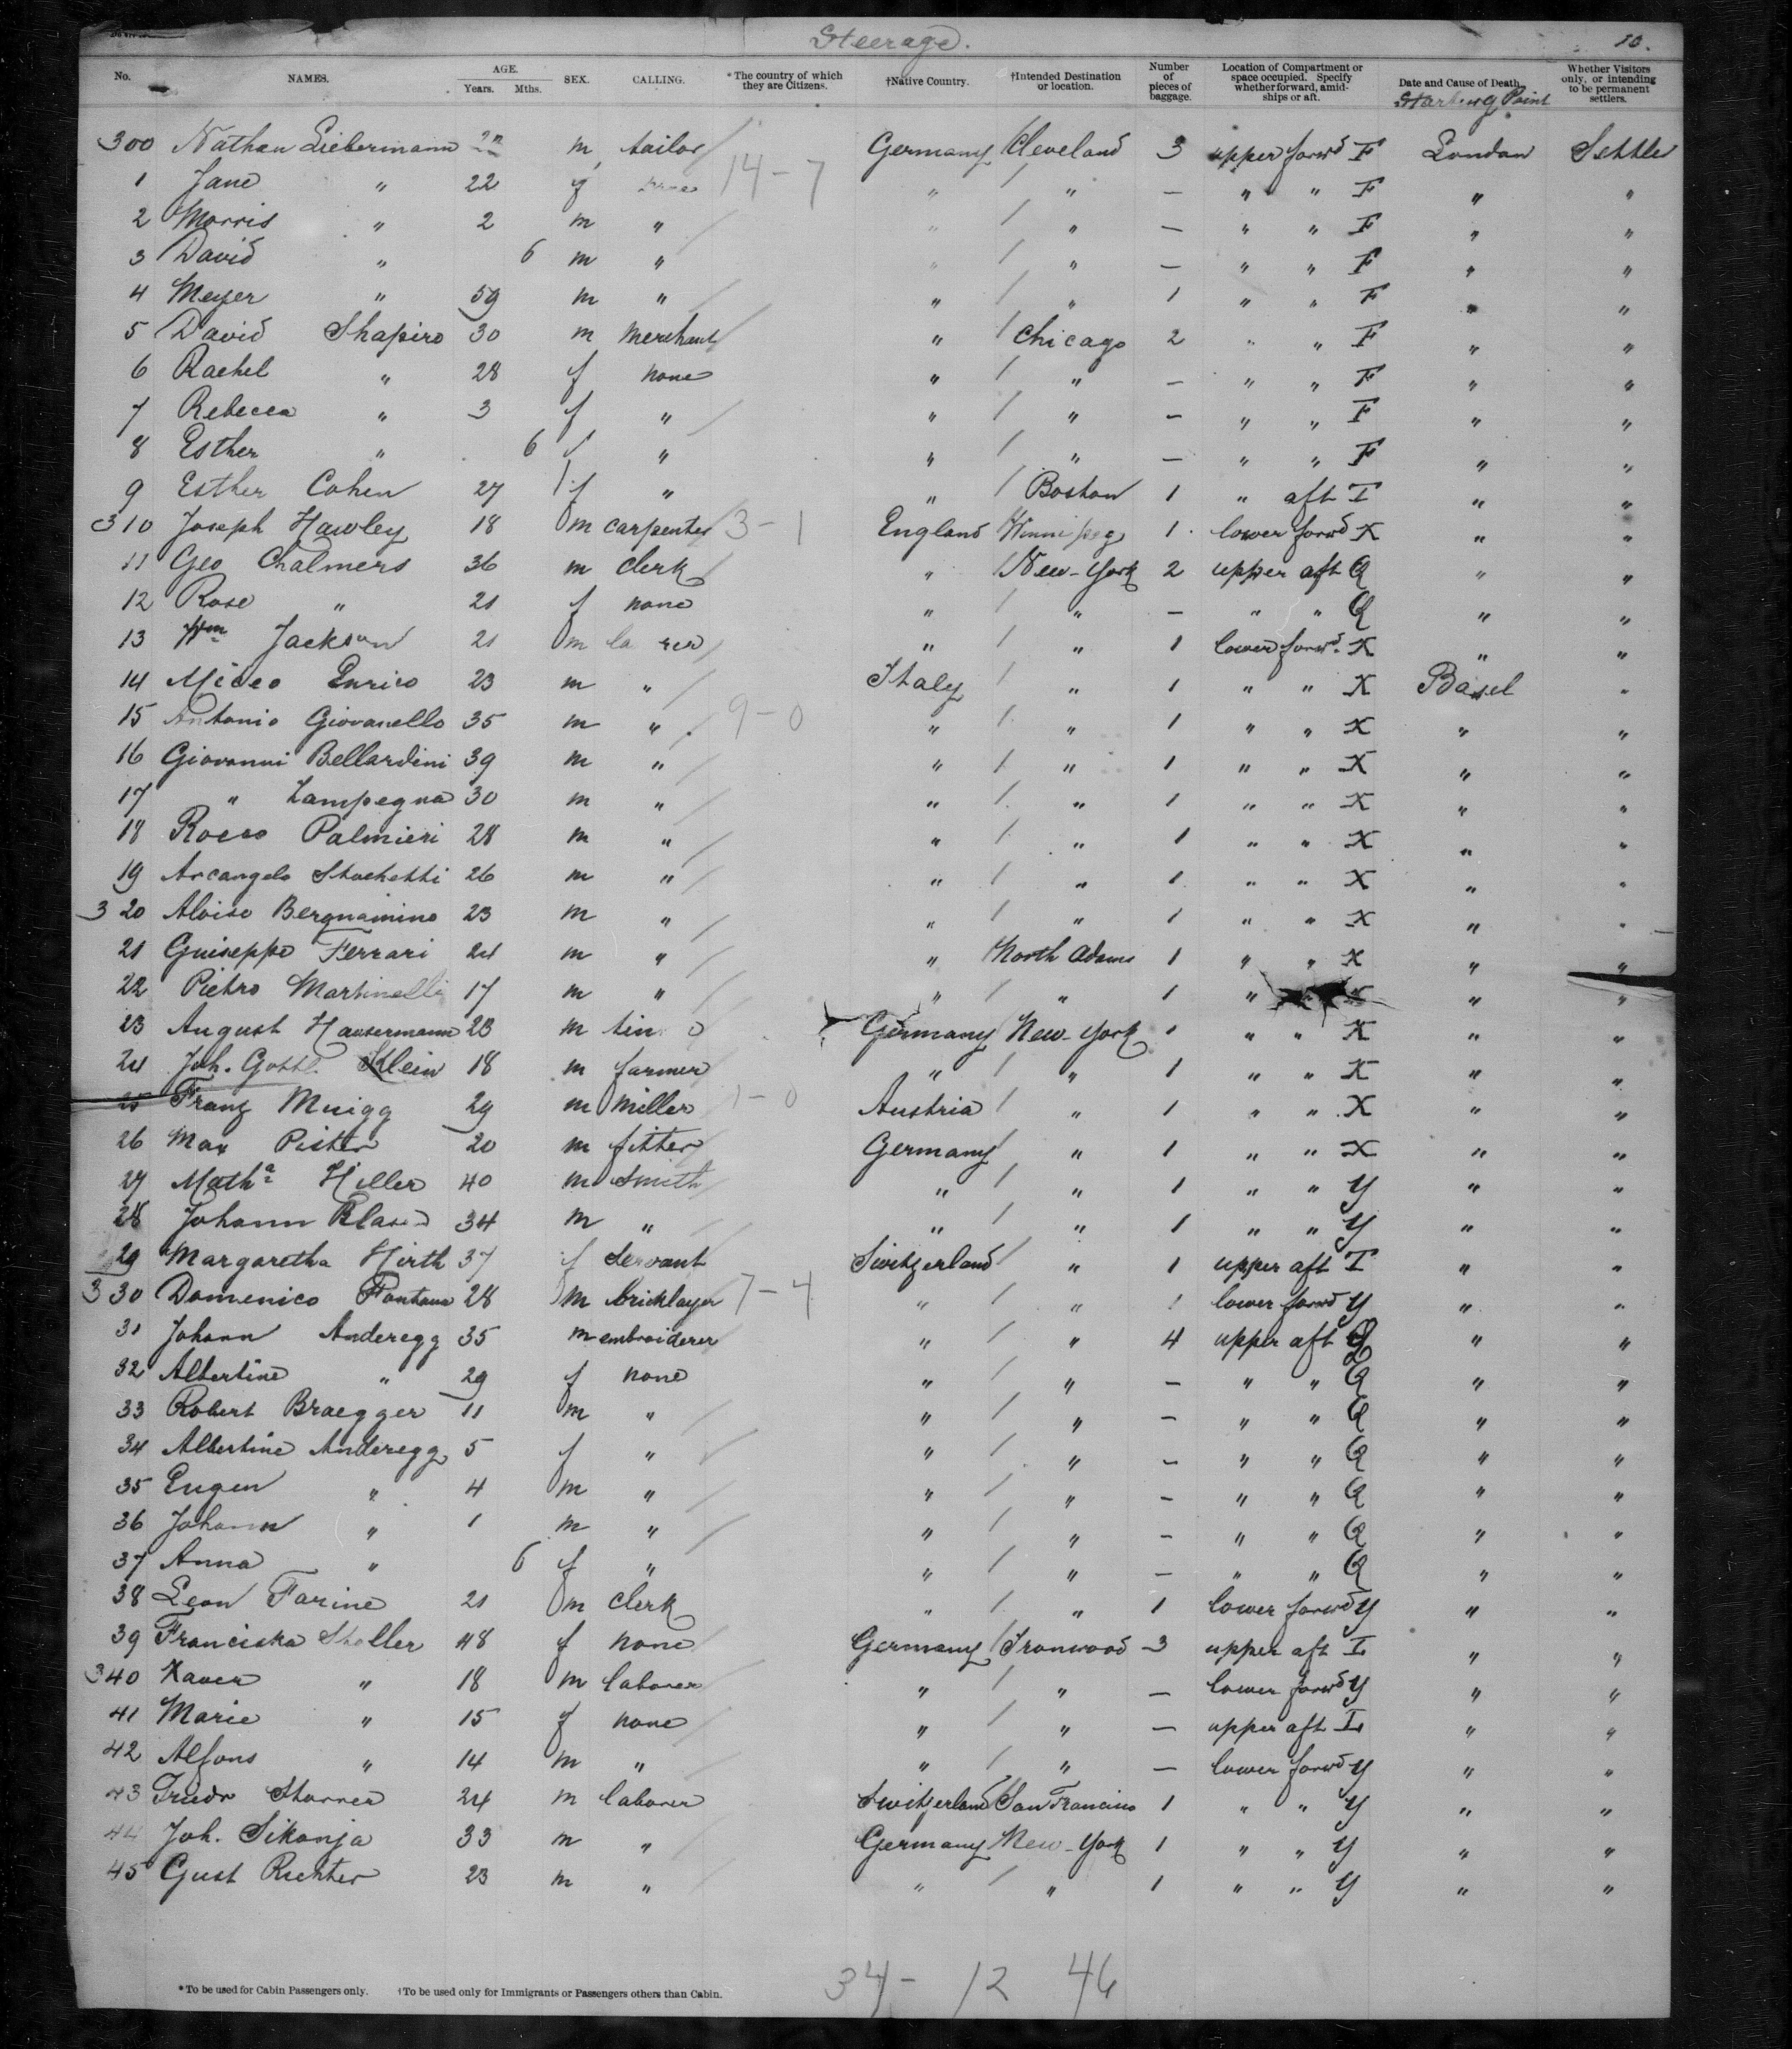 Steerage. 10.
No. NAMES. AGE. Years. Mths. SEX. CALLING. *The country of which they are Citizens. †Native Country. †Intended Destination or location. Number of pieces of baggage. Location of Compartment or space occupied. Specify whether forward, amidships or aft. Date and Cause of Death Starting Point Whether Visitors only, or intending to be permanent settlers.
300 Nathan Liebermann m tailor Germany Cleveland 3 upper forwd F London Settler
1 Jane " 22 f 14-7 " " — " " F " "
2 Morris " 2 m " " " — " " F " "
3 David " 6 m " " " — " " F " "
4 Meyer " 59 m " " " 1 " " F " "
5 David Shapiro 30 m merchant " Chicago 2 " " F " "
6 Rachel " 28 f none " " — " " F " "
7 Rebecca " 3 f " " " — " " F " "
8 Esther " 6 f " " " — " " F " "
9 Esther Cohen 27 f " " Boston 1 " aft I " "
310 Joseph Hawley 18 m carpenter 3-1 England Winnipeg 1 lower forwd X " "
11 Geo Chalmers 36 m clerk " New-York 2 upper aft Q " "
12 Rose " 21 f none " " — " " Q " "
13 Wm Jackson 21 m " " 1 lower forwd. X " "
14 Miceo Enrico 23 m " Italy " 1 " " X Basel "
15 Antonio Giovanello 35 m " 9-0 " " 1 " " X " "
16 Giovanni Bellardini 39 m " " " 1 " " X " "
17 " Lampegna 30 m " " " 1 " " X " "
18 Rocco Palmieri 28 m " " " 1 " " X " "
19 Arcangelo Stochetti 26 m " " " 1 " " X " "
320 Aloiso Bergnamino 23 m " " " 1 " " X " "
21 Guiseppe Ferrari 24 m " " North Adams 1 " " X " "
22 Pietro Martinelli 17 m " " " 1 " " X " "
23 August Haussermann 23 m Germany New-York 1 " " X " "
24 Joh. Gottl. Klein 18 m farmer " " 1 " " X " "
25 Franz Muigg 29 m miller 1-0 Austria " 1 " " X " "
26 Max Pister 20 m fitter Germany " 1 " " X " "
27 Matha Hiller 40 m smith " " 1 " " Y " "
28 Johann 34 m " " " 1 " " Y " "
29 Margaretha Hirth 37 f servant Switzerland " 1 upper aft I " "
330 Domenico Fontana 28 m bricklayer 7-4 " " 1 lower forwd Y " "
31 Johann Anderegg 35 m embroiderer " " 4 upper aft Q " "
32 Albertine " 29 f none " " — " " Q " "
33 Robert Braegger 11 m " " " — " " Q " "
34 Albertine Anderegg 5 f " " " — " " Q " "
35 Eugen " 4 m " " " — " " Q " "
36 Johann " 1 m " " " — " " Q " "
37 Anna " 6 f " " " — " " Q " "
38 Leon Farine 21 m clerk " " 1 lower forwd Y " "
39 Franciska Stoller 48 f none Germany Ironwood 3 upper aft I " "
340 Xaver " 18 m laborer " " — lower forwd Y " "
41 Marie " 15 f none " " — upper aft I " "
42 Alfons " 14 m " " " — lower forwd Y " "
43 Friedr Storrer 24 m laborer Switzerland San Francisco 1 " " Y " "
44 Joh. Sikonja 33 m " Germany New-York 1 " " Y " "
45 Gust Richter 23 m " " " 1 " " Y " "
34- 12 46
*To be used for Cabin Passengers only. †To be used only for Immigrants or Passengers others than Cabin.